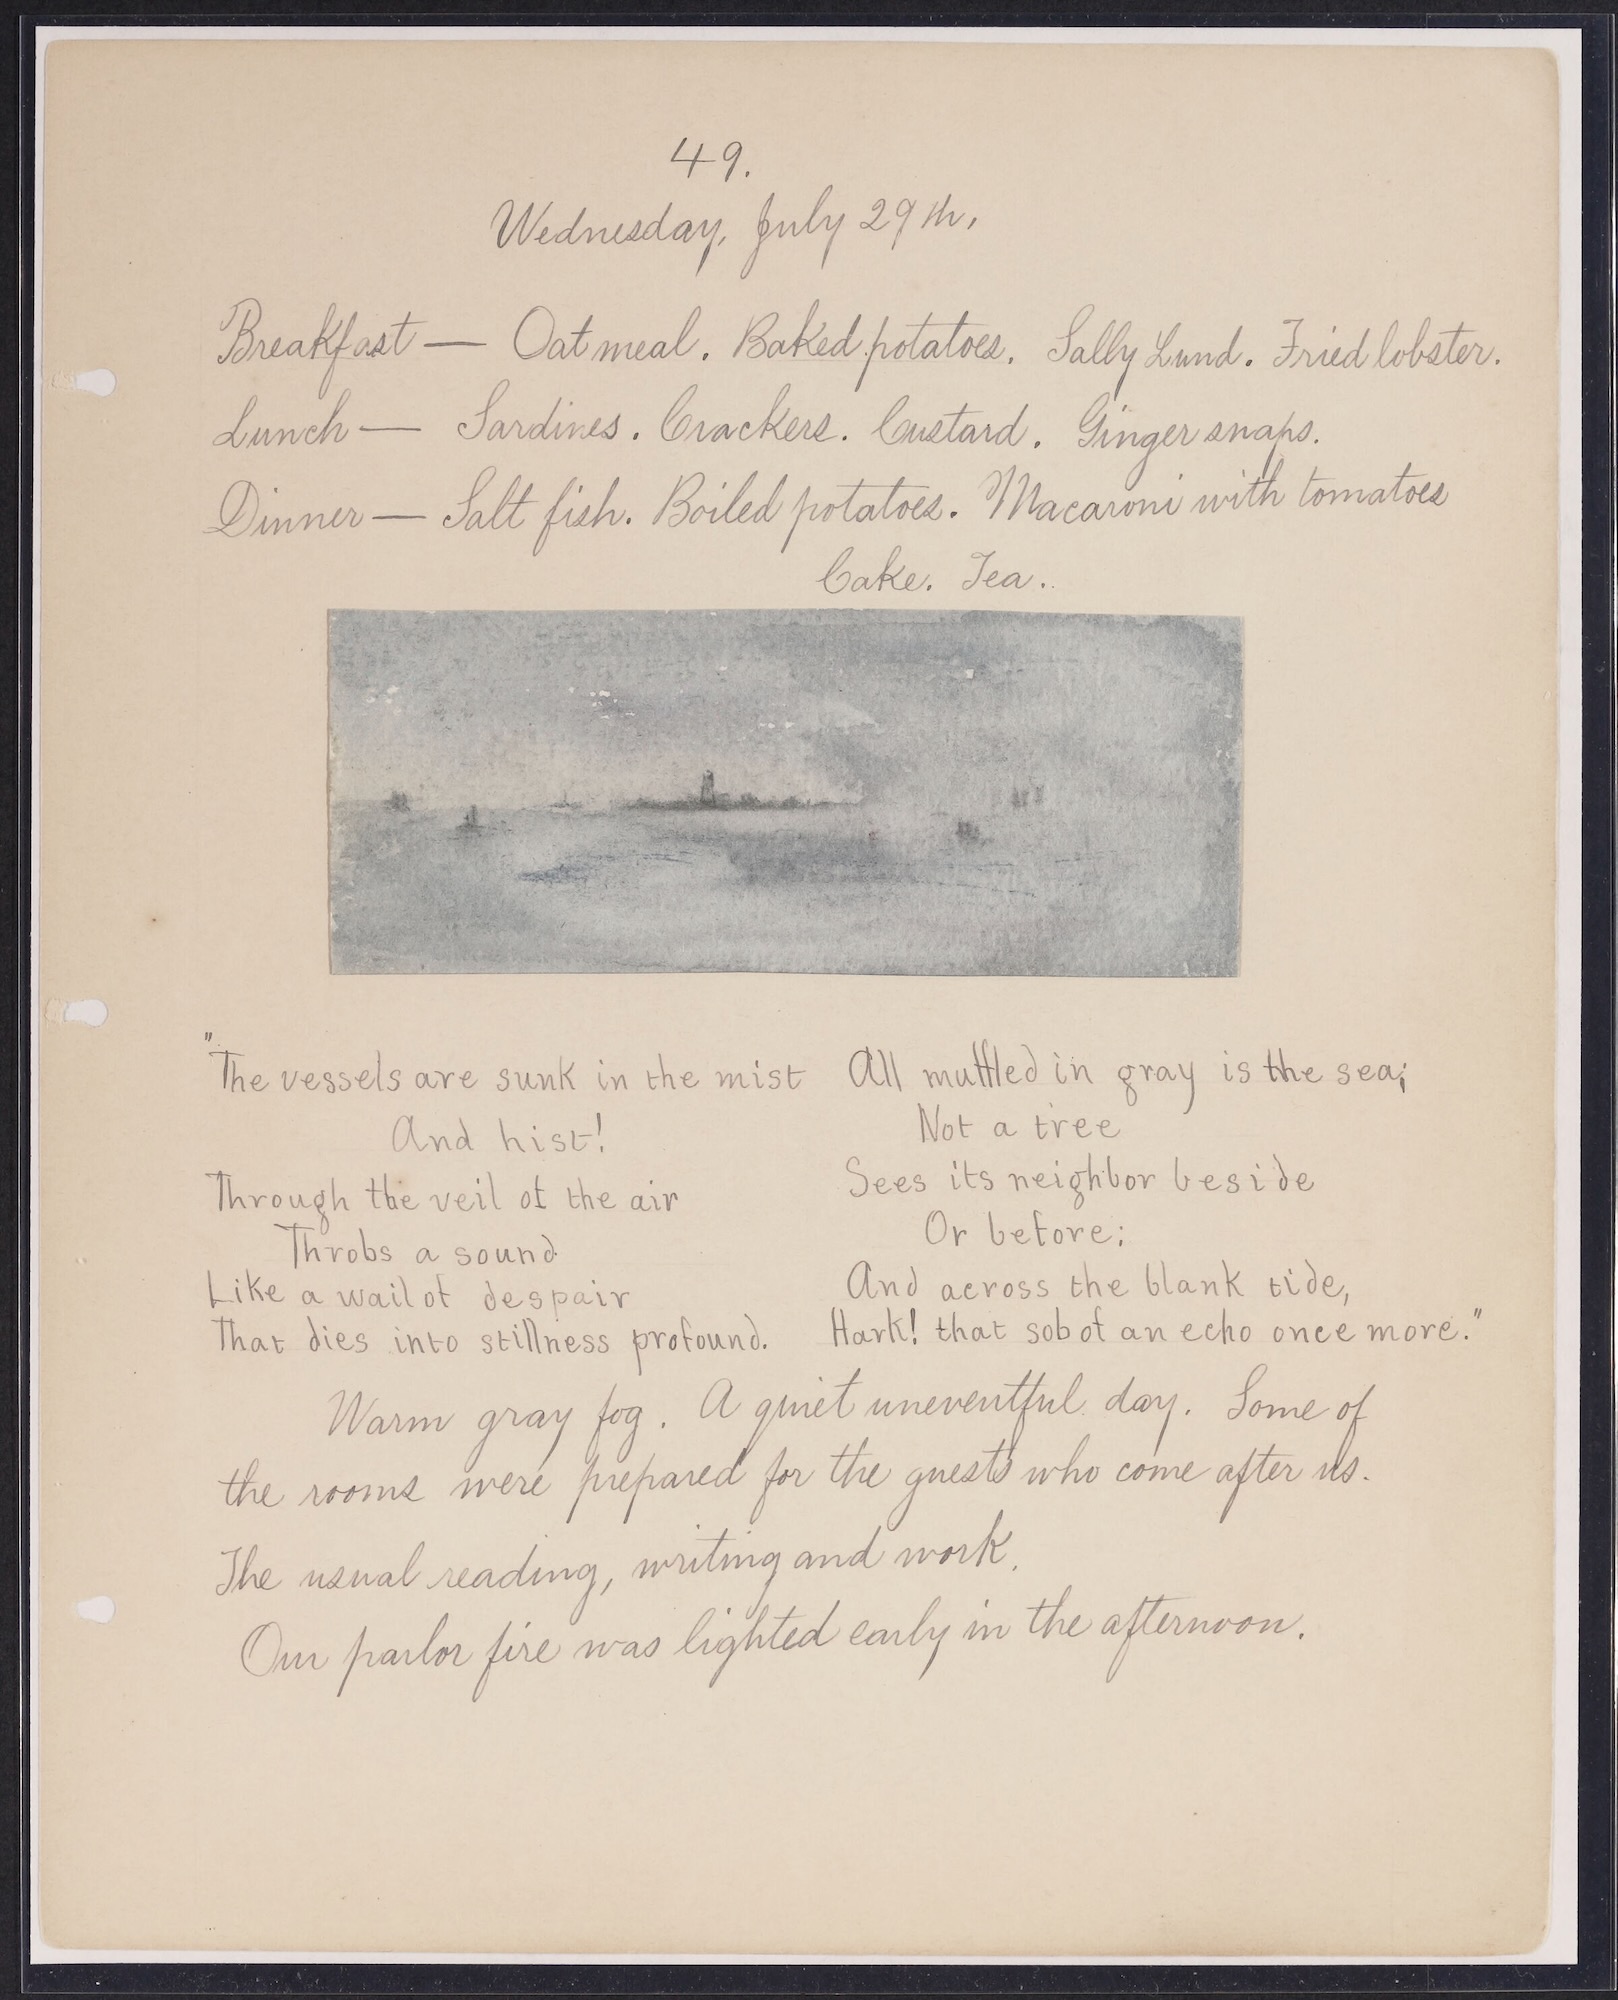 49.
Wednesday, July 29th,
Breakfast — Oatmeal. Baked potatoes. Sally Lund. Fried lobster.
Lunch — Sardines. Crackers. Custard. Ginger snaps.
Dinner — Salt fish. Boiled potatoes. Macaroni with tomatoes
Cake. Tea.
"The vessels are sunk in the mist
And hist!
Through the veil of the air
Throbs a sound
Like a wail of despair
That dies into stillness profound.
All muffled in gray is the sea;
Not a tree
Sees its neighbor beside
Or before;
And across the blank tide,
Hark! that sob of an echo once more."
Warm gray fog. A quiet uneventful day. Some of
the rooms were prepared for the guests who come after us.
The usual reading, writing and work.
Our parlor fire was lighted early in the afternoon.